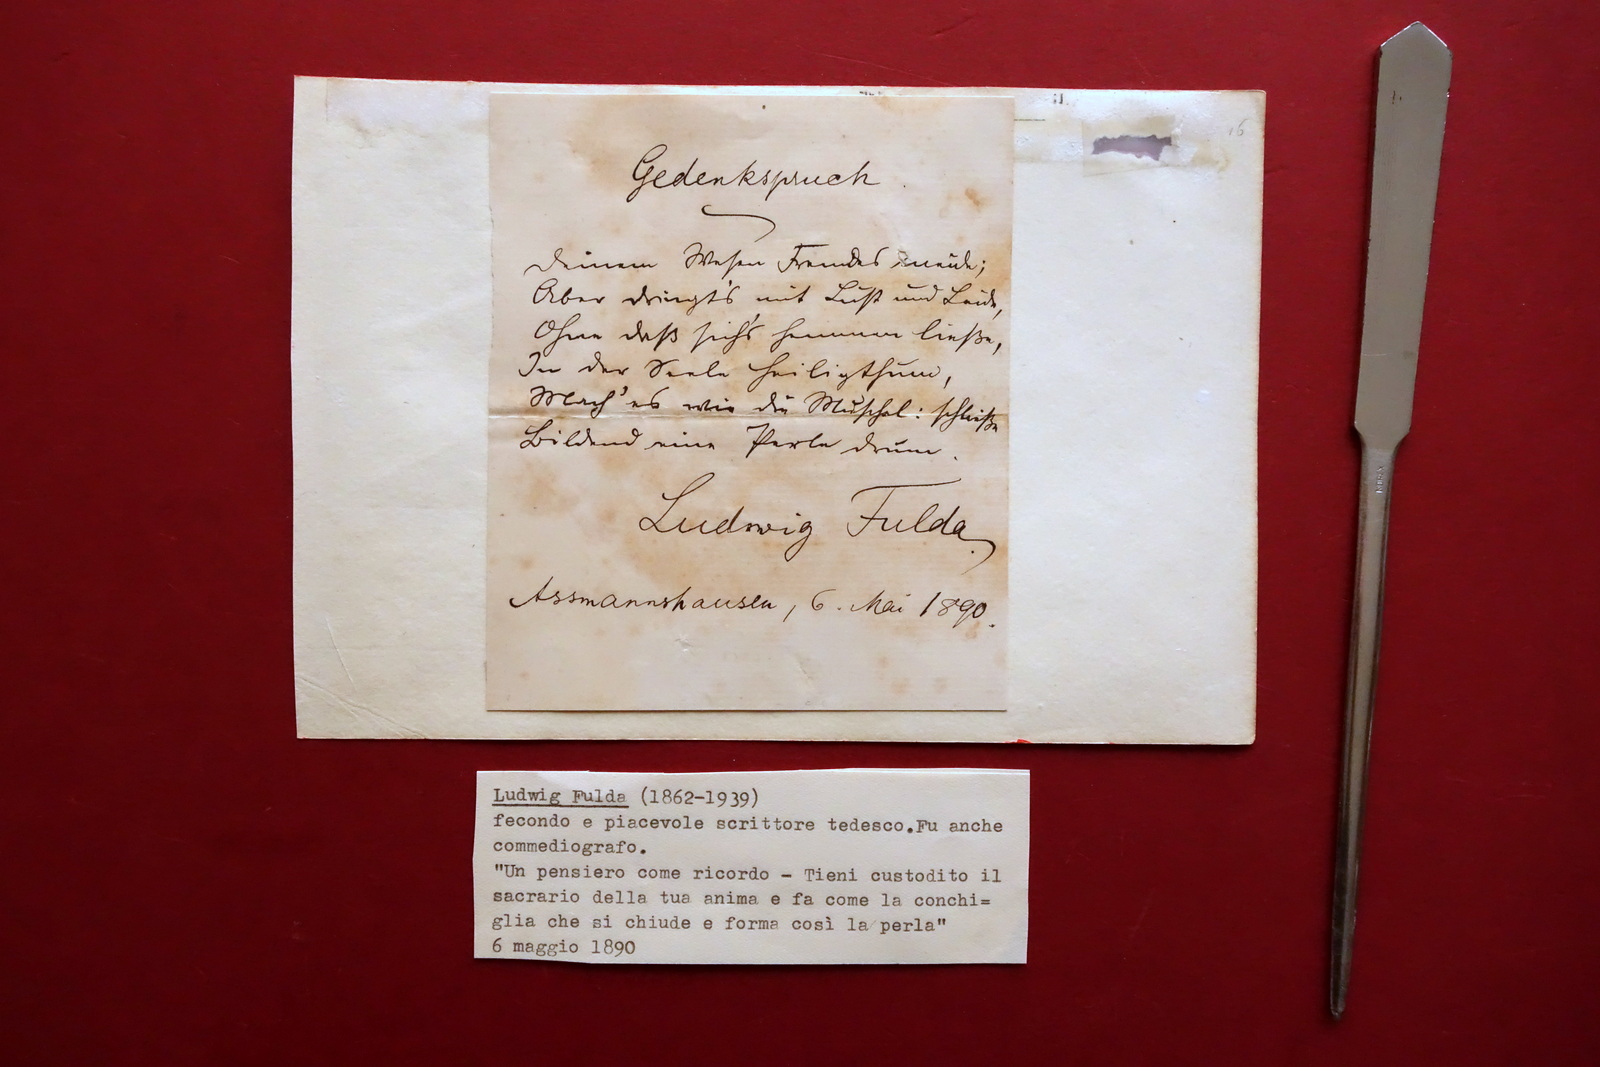 Gedenkspruch.
Deinem Wesen Fremdes meide;
Aber dringt's mit Lust und Leide,
Ohne daß sich's hemmen ließe,
In der Seele Heiligthum,
Mach' es wie die Muschel: schließe
Bildend eine Perle drum.
Ludwig Fulda.
Assmannshausen, 6. Mai 1890.
16
Ludwig Fulda (1862-1939)
fecondo e piacevole scrittore tedesco.Fu anche
commediografo.
"Un pensiero come ricordo - Tieni custodito il
sacrario della tua anima e fa come la conchi=
glia che si chiude e forma così la perla"
6 maggio 1890